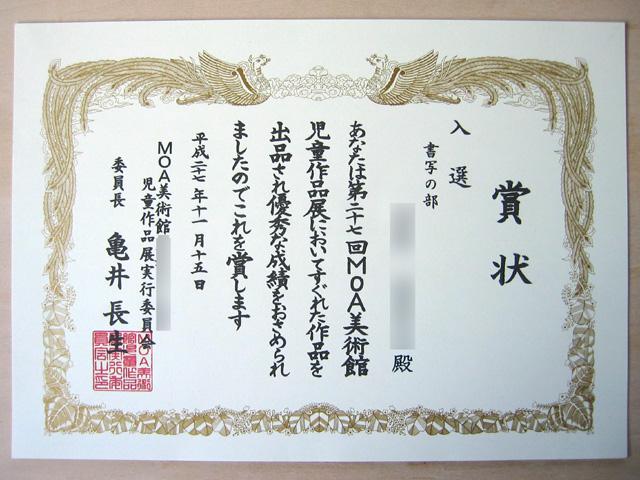 賞状
入選
書写の部
殿
あなたは第二十七回MOA美術館
児童作品展においてすぐれた作品を
出品され優秀な成績をおさめられ
ましたのでこれを賞します
平成二七年十一月十五日
MOA美術館
児童作品展実行委員会
委員長 亀井長生